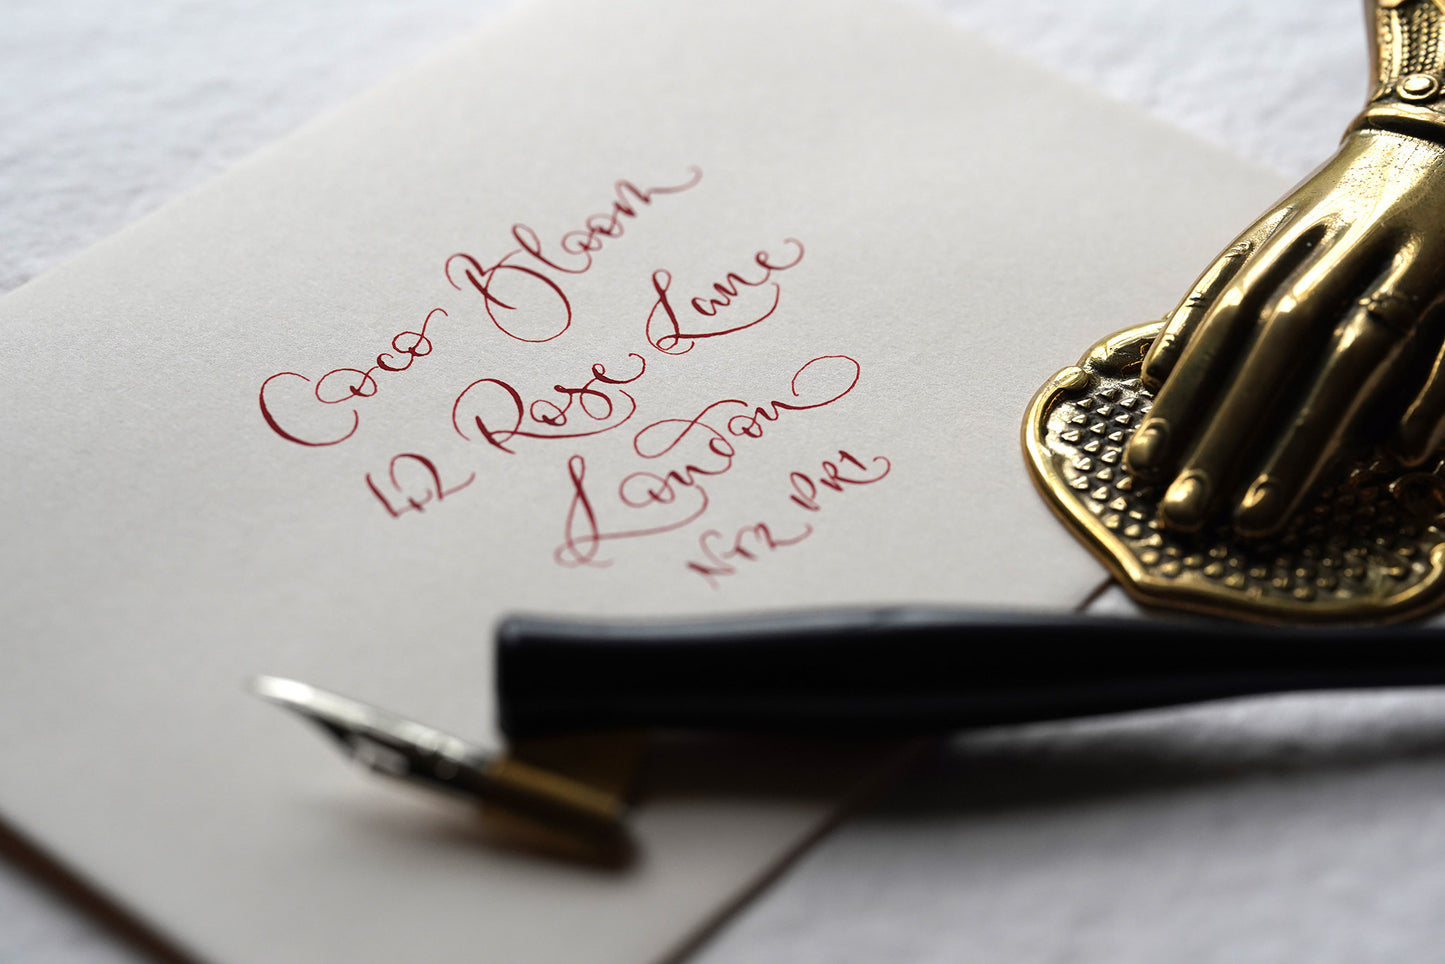 Coco Bloom
42 Rose Lane
London
N12 PR1